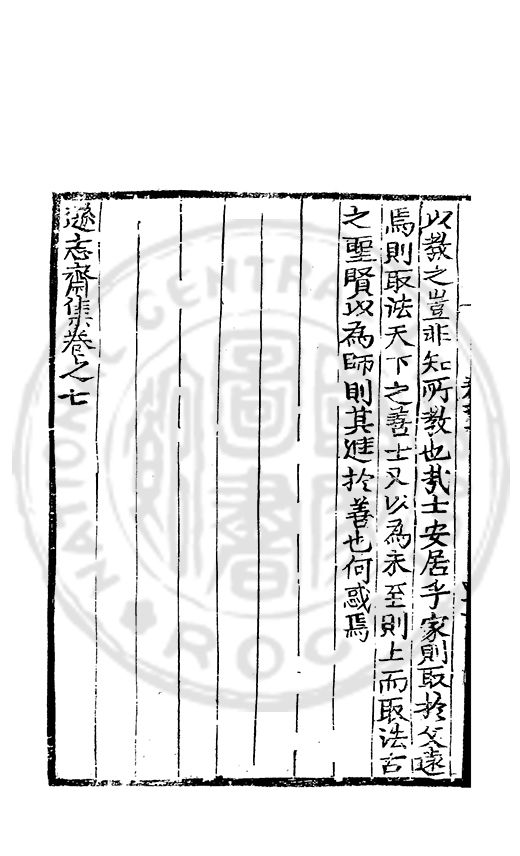 以教之豈非知所教也哉士安居乎家則取於父遠
焉則取法天下之善士又以為未至則上而取法古
之聖賢以為師則其進於善也何惑焉
遜志齋集卷之七
NATIONAL CENTRAL
R.O.C.
圖書